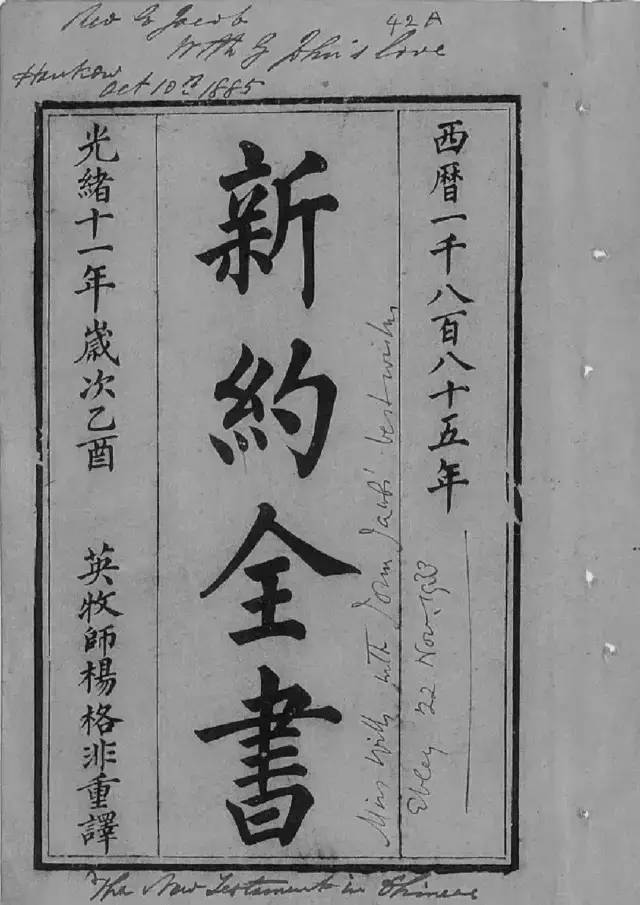 Rev G Jacob
With G John's love
42A
Hankow
Oct 10th 1885
西曆一千八百八十五年
新約全書
光緒十一年歲次乙酉
英牧師楊格非重譯
Miss with best wishes
22 Nov. 1933
The New Testament in Chinese